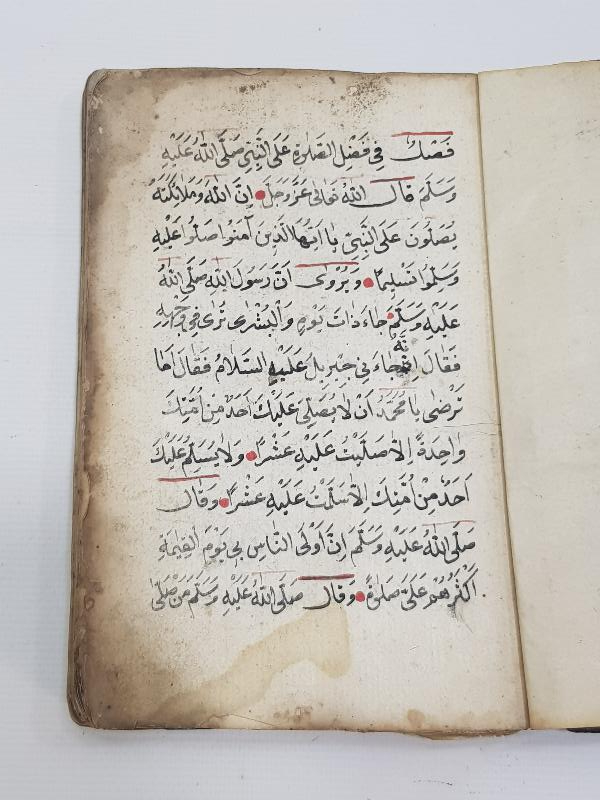 فَصْلٌ فِي فَضْلِ الصَّلٰوةِ عَلَى النَّبِيِّ صَلَّى اللّٰهُ عَلَيْهِ
وَسَلَّمَ قَالَ اللّٰهُ تَعَالٰى عَزَّ وَجَلَّ اِنَّ اللّٰهَ وَمَلَائِكَتَهُ
يُصَلُّونَ عَلَى النَّبِيِّ يَا اَيُّهَا الَّذِينَ آمَنُوا صَلُّوا عَلَيْهِ
وَسَلِّمُوا تَسْلِيمًا وَيُرْوٰى اَنَّ رَسُولَ اللّٰهِ صَلَّى اللّٰهُ
عَلَيْهِ وَسَلَّمَ جَاءَ ذَاتَ يَوْمٍ وَالْبُشْرٰى تُرٰى فِي وَجْهِهِ
فَقَالَ اِنَّهُ جَاءَنِي جِبْرِيلُ عَلَيْهِ السَّلَامُ فَقَالَ اَمَا
تَرْضٰى يَا مُحَمَّدُ اَنْ لَا يُصَلِّيَ عَلَيْكَ اَحَدٌ مِنْ اُمَّتِكَ
وَاحِدَةً اِلَّا صَلَّيْتُ عَلَيْهِ عَشْرًا وَلَا يُسَلِّمُ عَلَيْكَ
اَحَدٌ مِنْ اُمَّتِكَ اِلَّا سَلَّمْتُ عَلَيْهِ عَشْرًا وَقَالَ
صَلَّى اللّٰهُ عَلَيْهِ وَسَلَّمَ اِنَّ اَوْلَى النَّاسِ بِي يَوْمَ الْقِيٰمَةِ
اَكْثَرُهُمْ عَلَيَّ صَلٰوةً وَقَالَ صَلَّى اللّٰهُ عَلَيْهِ وَسَلَّمَ مَنْ صَلَّى